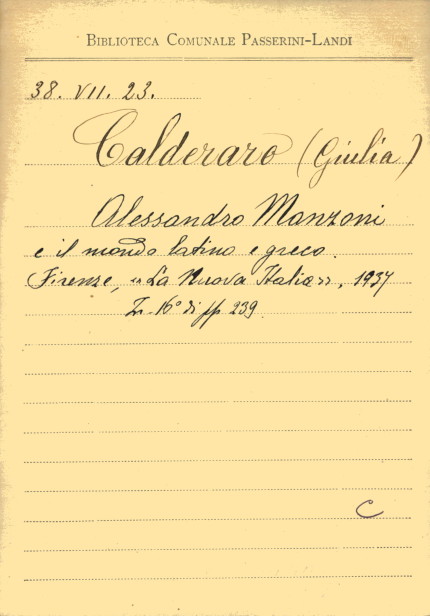 BIBLIOTECA COMUNALE PASSERINI-LANDI
38. VII. 23.
Calderaro (Giulia)
Alessandro Manzoni
e il mondo latino e greco.
(Firenze, «La Nuova Italia», 1937
In-16° di pp 239.
C